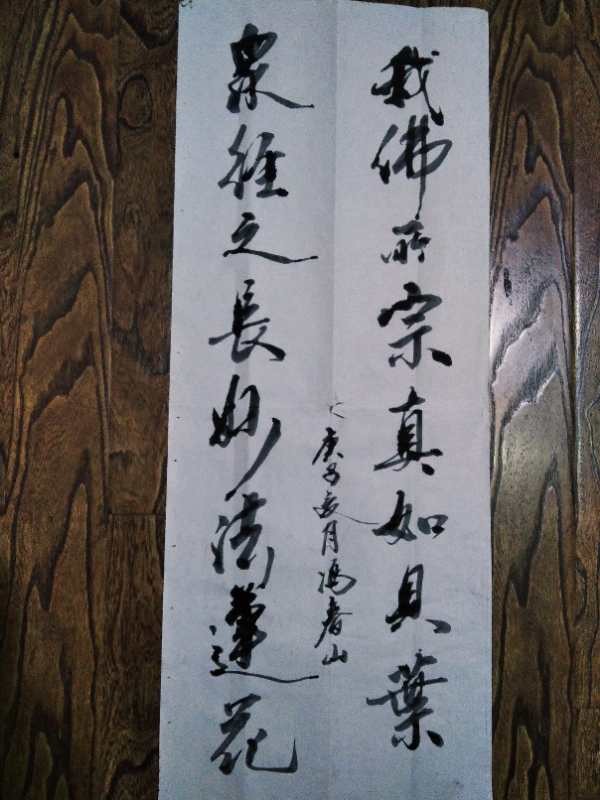 我佛所宗真如貝葉
衆經之長妙法蓮花
庚子夏月馮春山